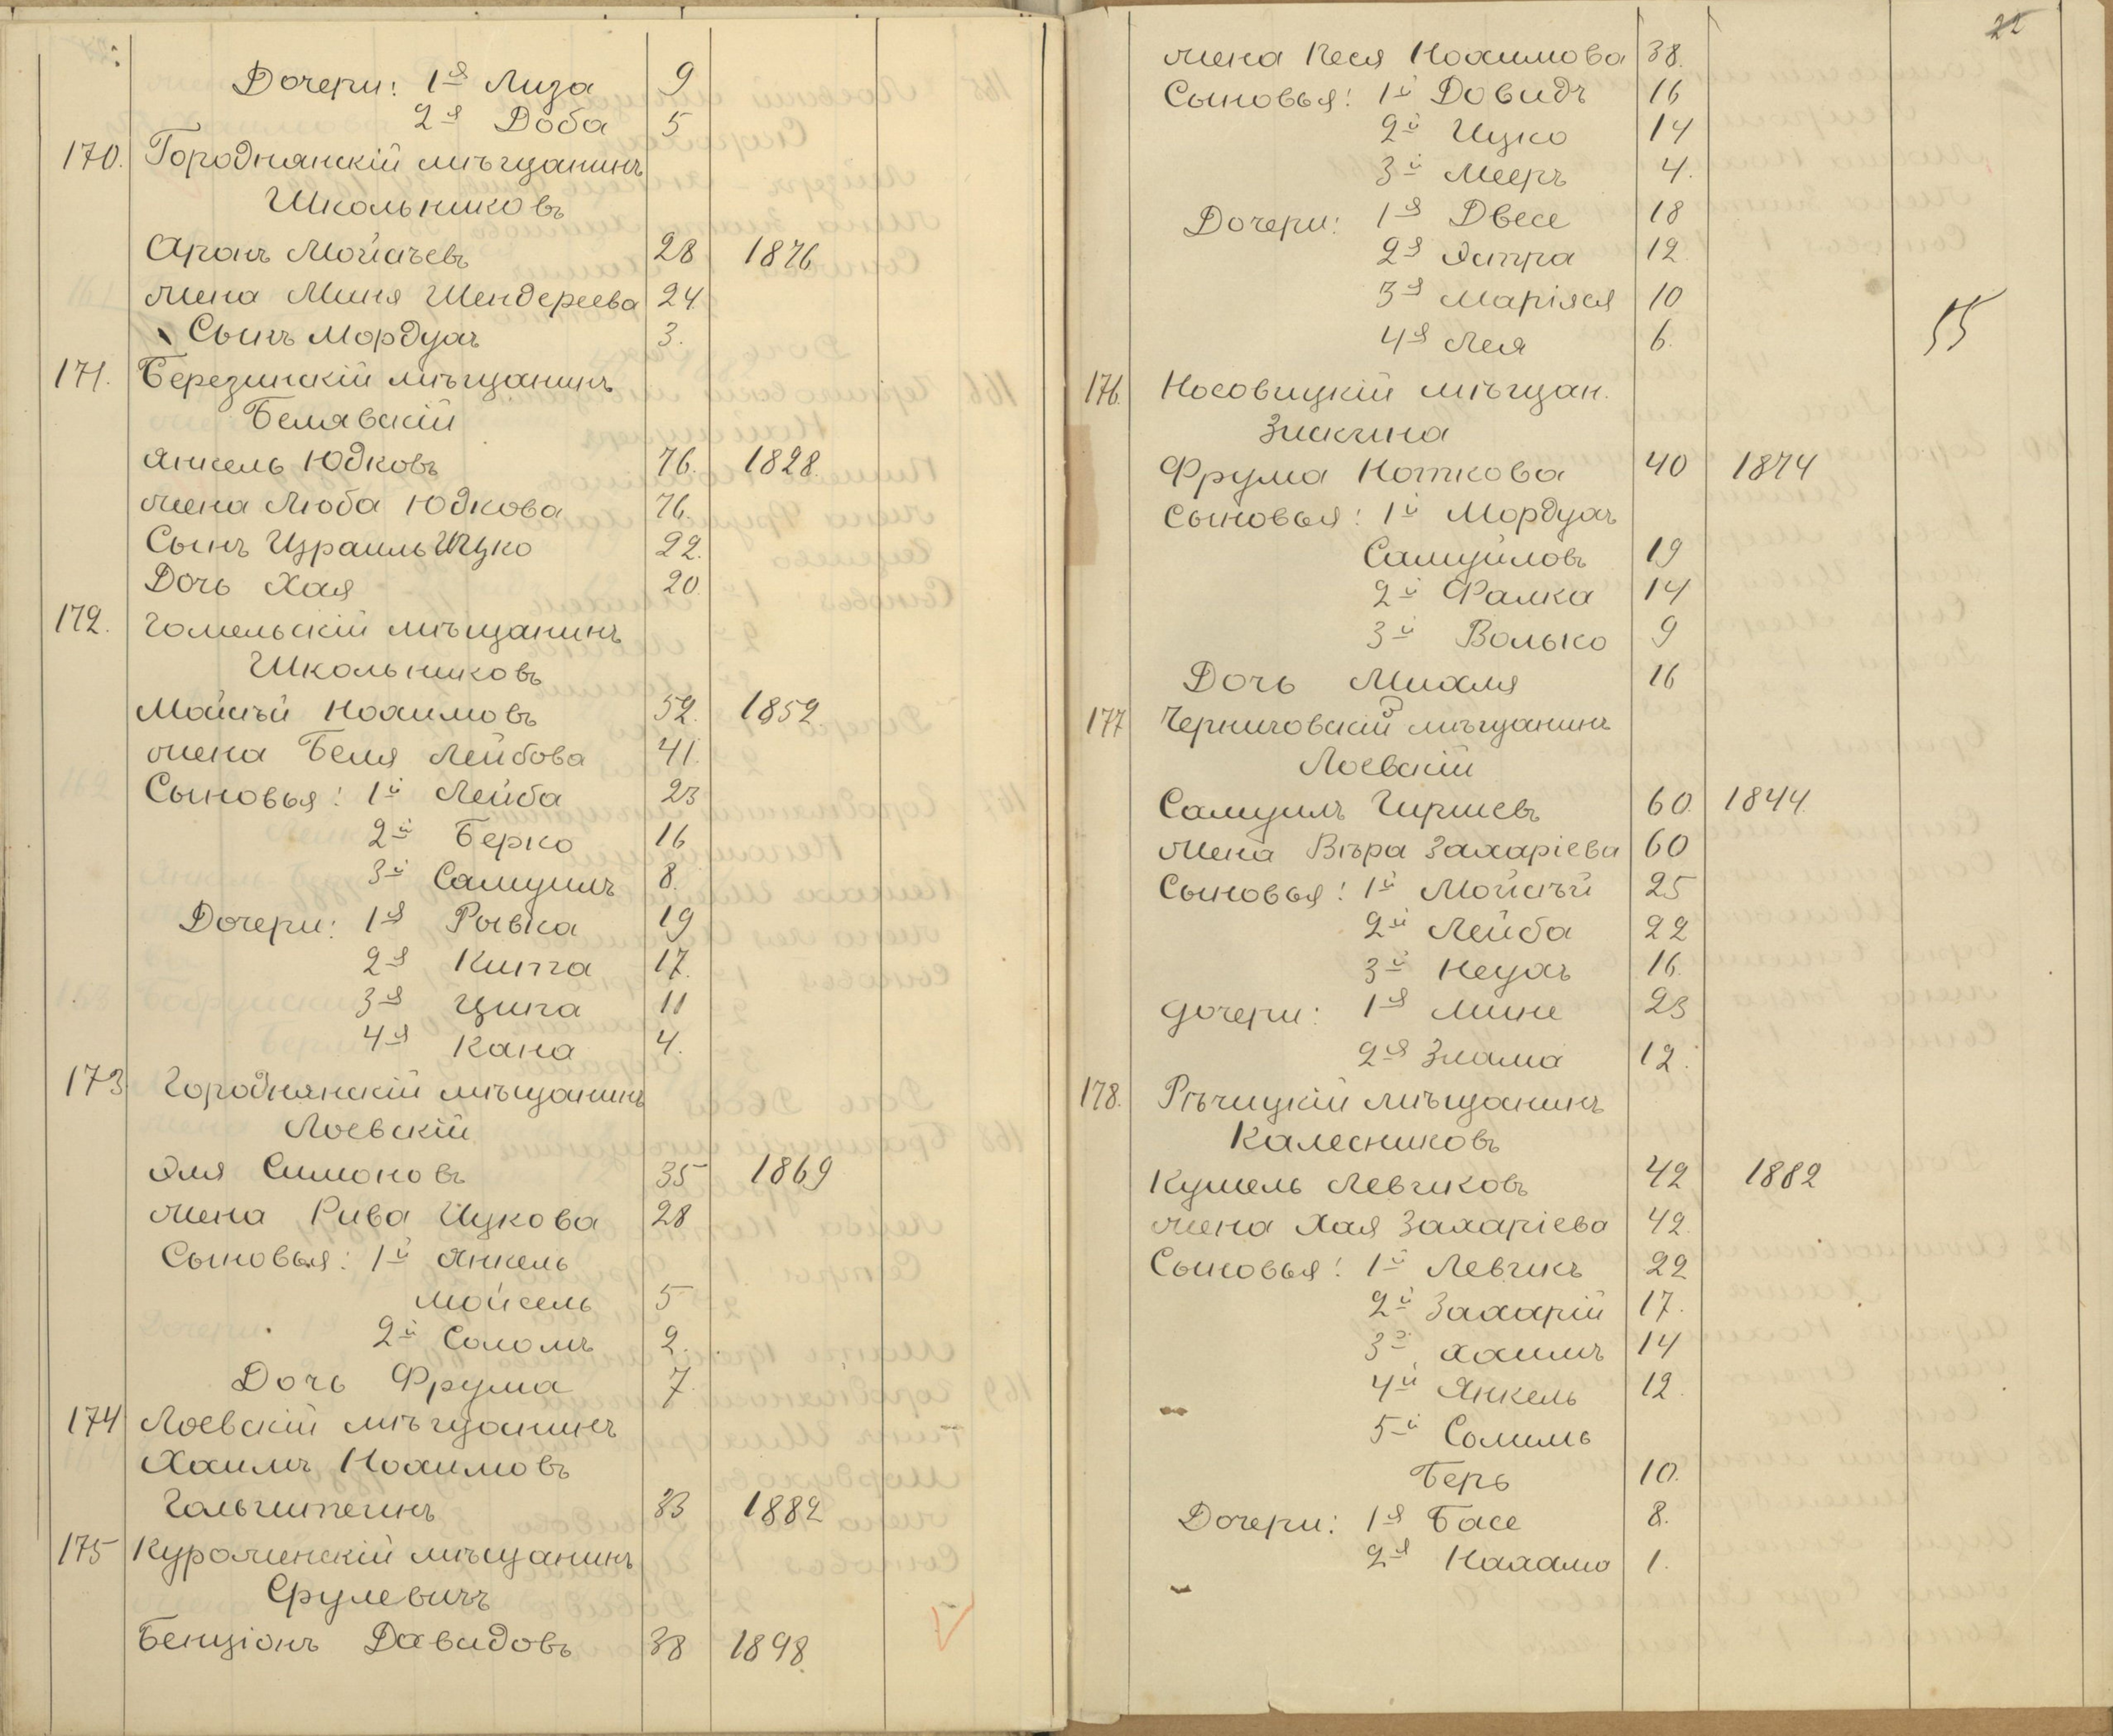 Дочери: 1я Лиза 9
2я Доба 5
170. Городнянскій мѣщанинъ
Школьниковъ
Аронъ Мойсѣевъ 28 1876
жена Миня Шендереева 24.
Сынъ Мордухъ 3.
171. Березинскій мѣщанинъ
Белявскій
Янкель Юдковъ 76. 1828.
жена Люба Юдкова 76.
Сынъ Израиль Ицко 22.
Дочь Хая 20.
172. Гомельскій мѣщанинъ
Школьниковъ
Мойсѣй Нохимовъ 52. 1852
жена Беля Лейбова 41.
Сыновья: 1й Лейба 23
2й Берко 16
3й Самуилъ 8.
Дочери: 1я Рывка 19
2я Кита 17.
3я Ципа 11
4я Хана 4.
173 Городнянскій мѣщанинъ
Лоевскій
Эля Симоновъ 35 1869
жена Рива Ицкова 28
Сыновья: 1й Янкель
Мойсель 5
2й Соломъ 2.
Дочь Фрума 7.
174 Лоевскій мѣщанинъ
Хаимъ Нохимовъ
Гольштеинъ 33 1882
175 Куроженскій мѣщанинъ
Срулевичъ
Бенціонъ Давидовъ 38 1898.
22
жена Песя Нохимова 38.
Сыновья: 1й Довидъ 16
2й Ицко 14
3й Мееръ 4.
Дочери: 1я Двесе 18
2я Эстра 12.
3я Маріяся 10
4я Лея 6.
55
176. Носовицкій мѣщан.
Зискина
Фрума Ноткова 40 1874
Сыновья: 1й Мордухъ
Самуйловъ 19
2й Фалка 14
3й Волько 9
Дочь Михля 16
177 Черниговскій мѣщанинъ
Лоевскій
Самуилъ Гиршевъ 60. 1844.
жена Вѣра Захаріева 60
Сыновья: 1й Мойсѣй 25
2й Лейба 22
3й Неухъ 16.
дочери: 1я Мине 23
2я Злата 12.
178. Рѣчицкій мѣщанинъ
Калесниковъ
Кушель Левиковъ 42 1882
жена Хая Захаріева 42.
Сыновья: 1й Левикъ 22
2й Захарій 17.
3й Хаимъ 14
4й Янкель 12.
5й Солимъ
Беръ 10.
Дочери: 1я Басе 8.
2я Нахама 1.